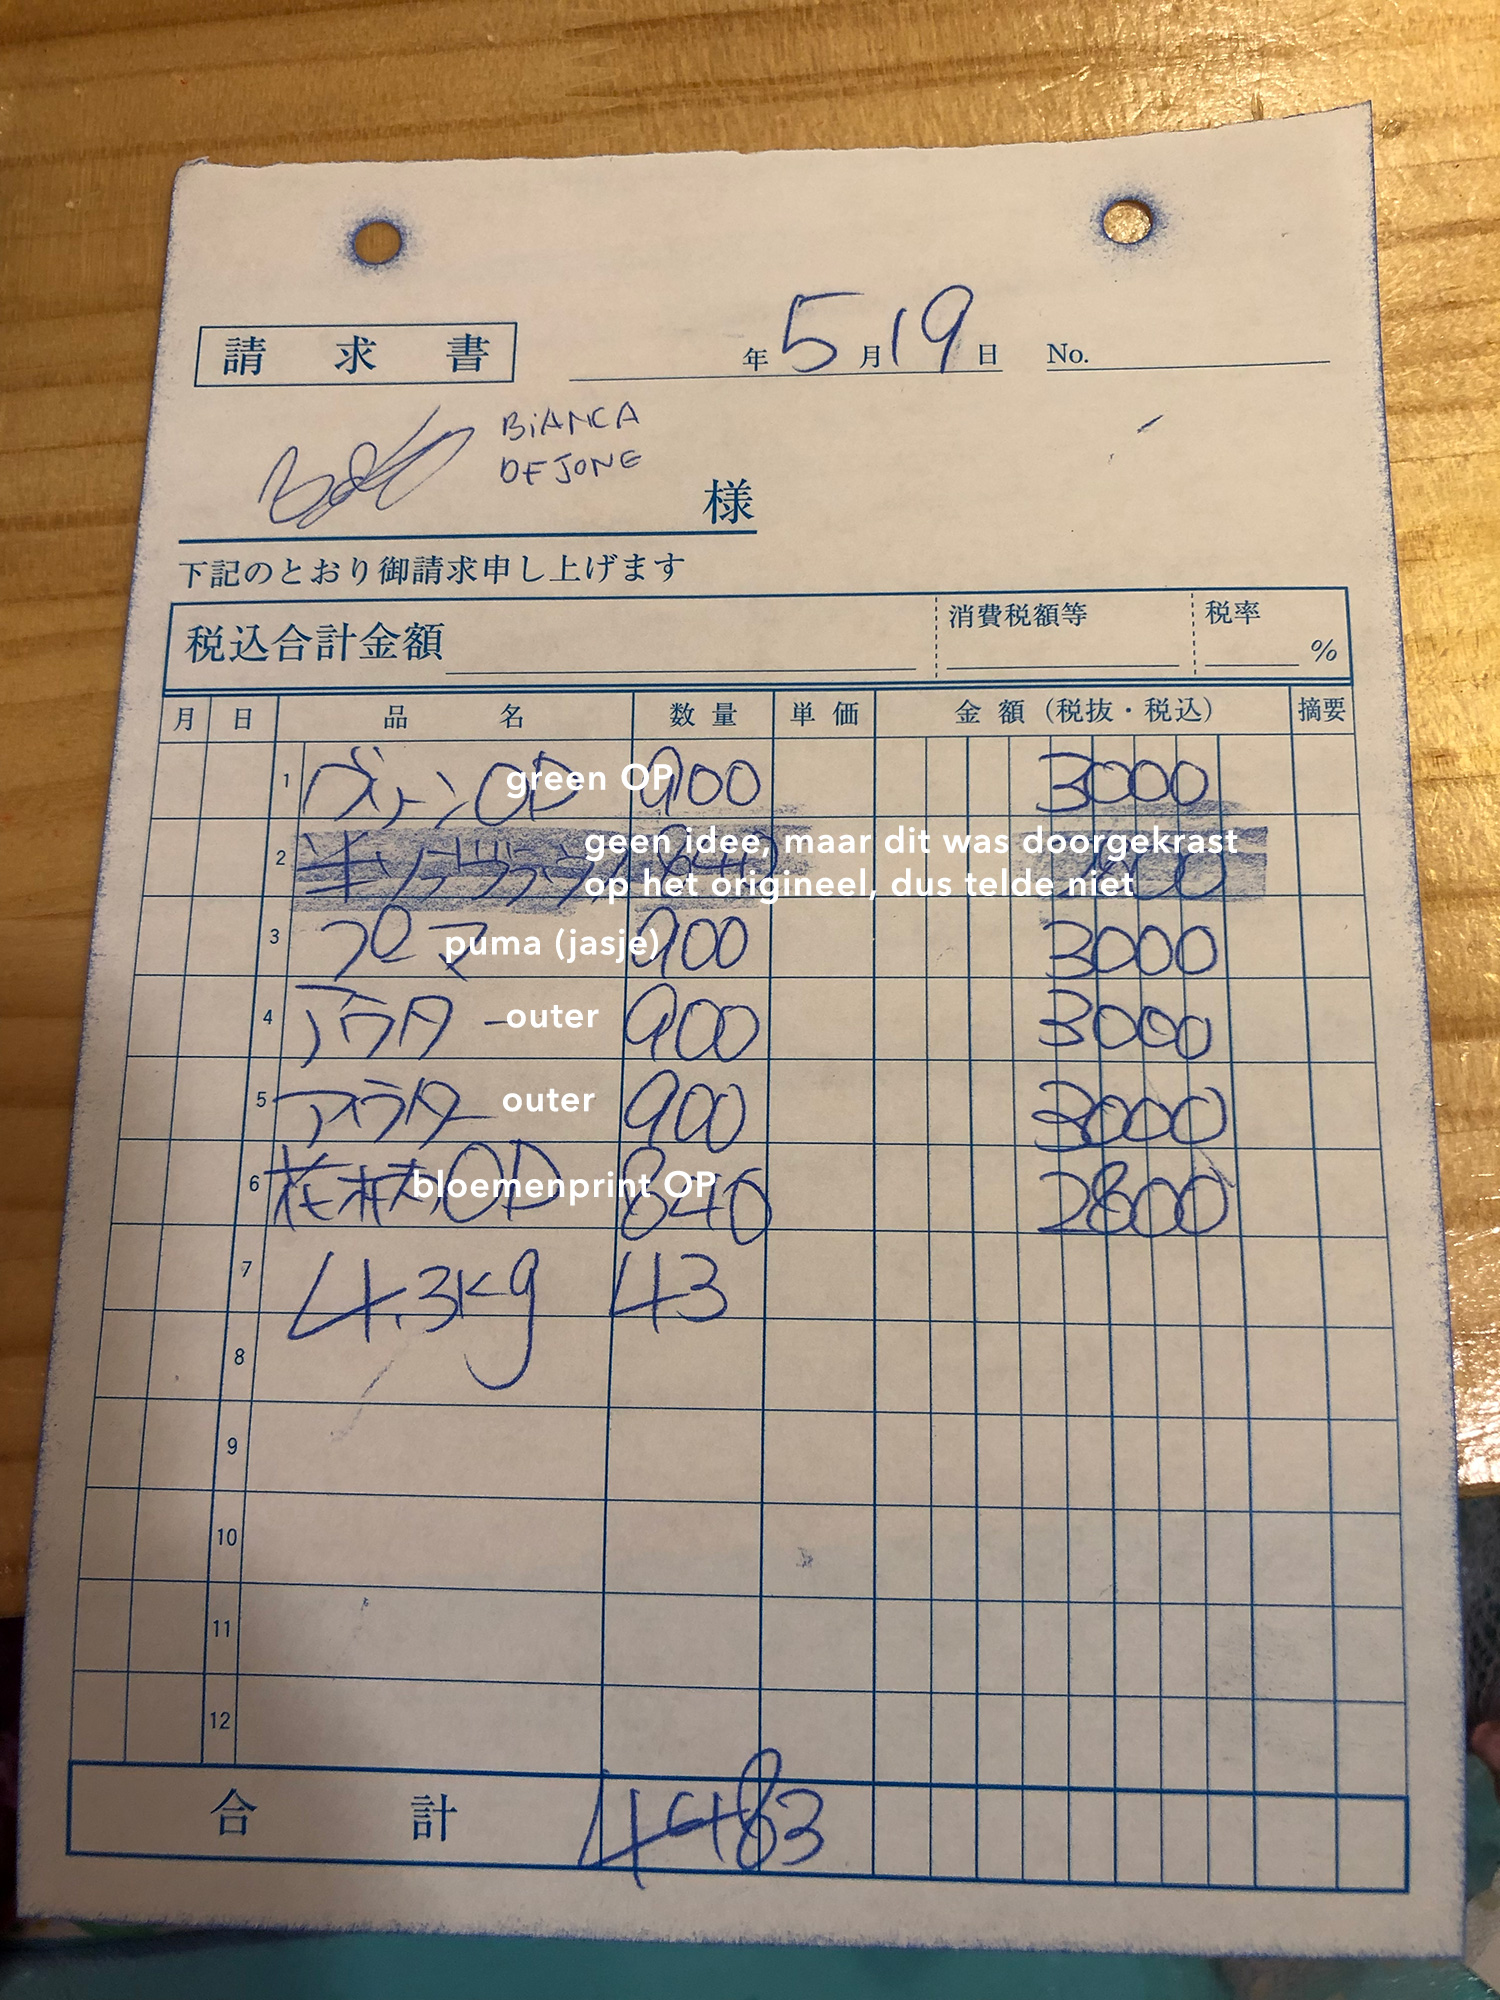 請求書
年 5 月 19 日 No.
BiANCA
DE JONE
様
下記のとおり御請求申し上げます
税込合計金額 消費税額等 税率 %
月 日 品名 数量 単価 金額(税抜・税込) 摘要
1 グリーンOP green OP 900 3000
2 840 geen idee, maar dit was doorgekrast
op het origineel, dus telde niet
3 プーマ puma (jasje) 900 3000
4 アウター outer 900 3000
5 アウター outer 900 3000
6 花柄OP bloemenprint OP 840 2800
7 4.3kg 43
8
9
10
11
12
合計 4483